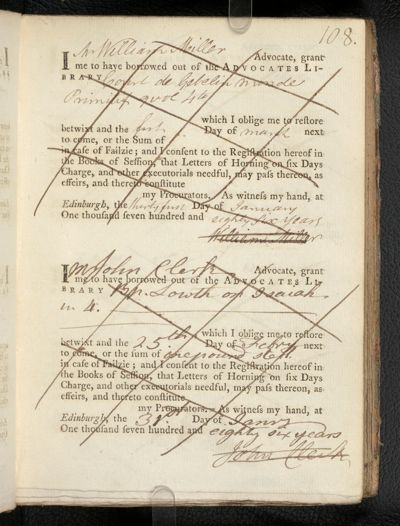 108.
I Mr William Miller Advocate, grant
me to have borrowed out of the ADVOCATES LI-
BRARY Court de Gebelin monde
Primitif 9 vol 4to
which I oblige me to restore
betwixt and the first Day of march next
to come, or the Sum of
in case of Failzie; and I consent to the Registration hereof in
the Books of Session, that Letters of Horning on six Days
Charge, and other executorials needful, may pass thereon, as
effeirs, and thereto constitute
my Procurators. As witness my hand, at
Edinburgh, the thirty first Day of January
One thousand seven hundred and eighty six years
William Miller
I Mr John Clerk Advocate, grant
me to have borrowed out of the ADVOCATES LI-
BRARY Bp. Lowth on Isaiah
in 4.
which I oblige me to restore
betwixt and the 25th Day of Febry next
to come, or the sum of one pound sterl.
in case of Failzie; and I consent to the Registration hereof in
the Books of Session, that Letters of Horning on six Days
Charge, and other executorials needful, may pass thereon, as
effeirs, and thereto constitute
my Procurators. As witness my hand, at
Edinburgh, the 31st Day of Janry
One thousand seven hundred and eighty six years
John Clerk